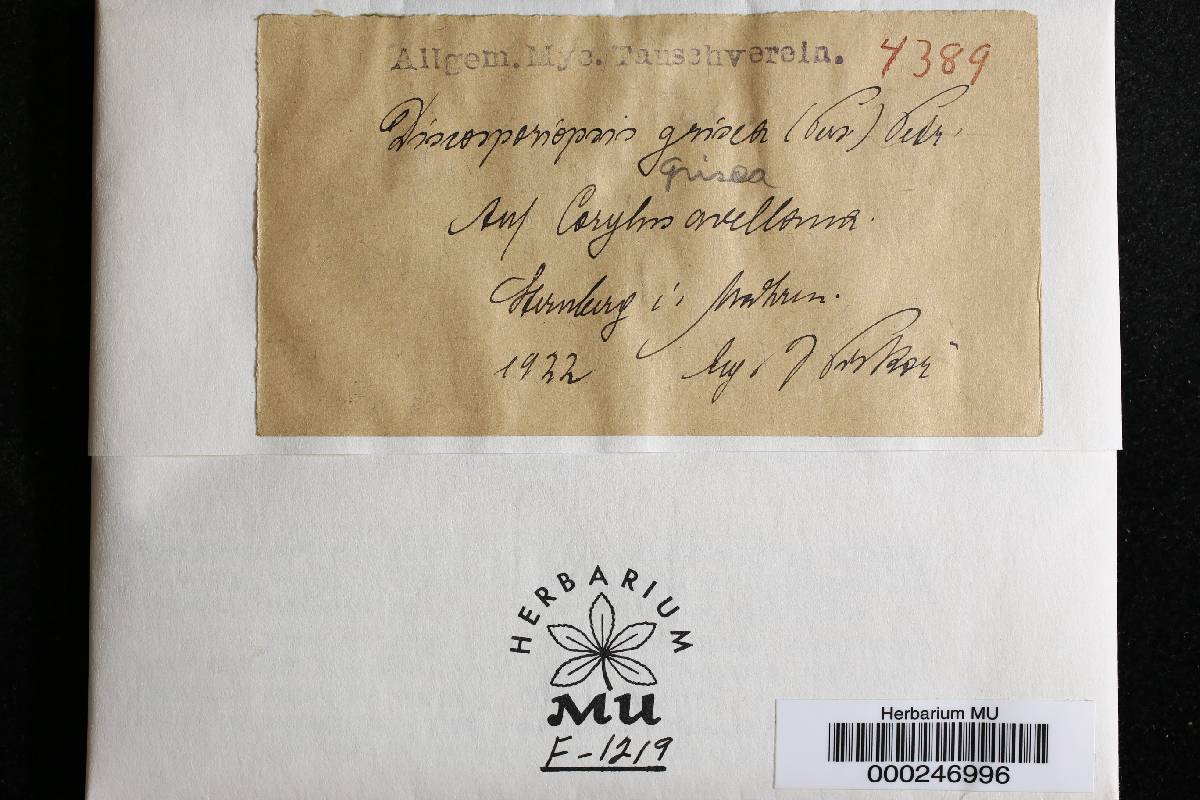 Allgem. Myc. Tauschverein. 4389
Discosporiopsis grisea (Pers.) Petr.
grisea
Auf Corylus avellana.
Sternberg i. Mähren.
1922 leg. J Piskoř
HERBARIUM
MU
F-1219
Herbarium MU
000246996